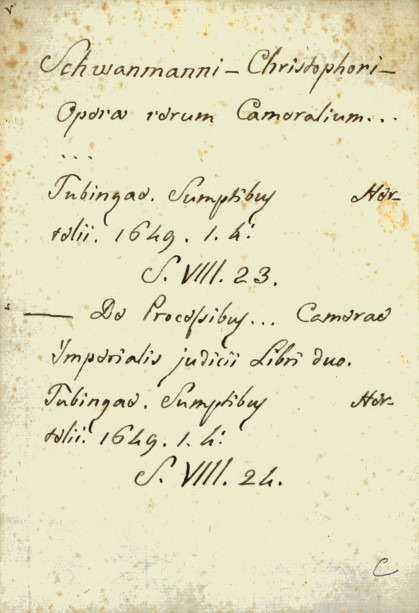 Schwanmanni - Christophori -
Opera rerum Cameralium...
...
Tubingae. Sumptibus Her-
telii. 1649. 1. 4:
S. VIII. 23.
— De Processibus... Camerae
Imperialis judicii Libri duo.
Tubingae. Sumptibus Her-
telii. 1649. 1. 4:
S. VIII. 24.
C